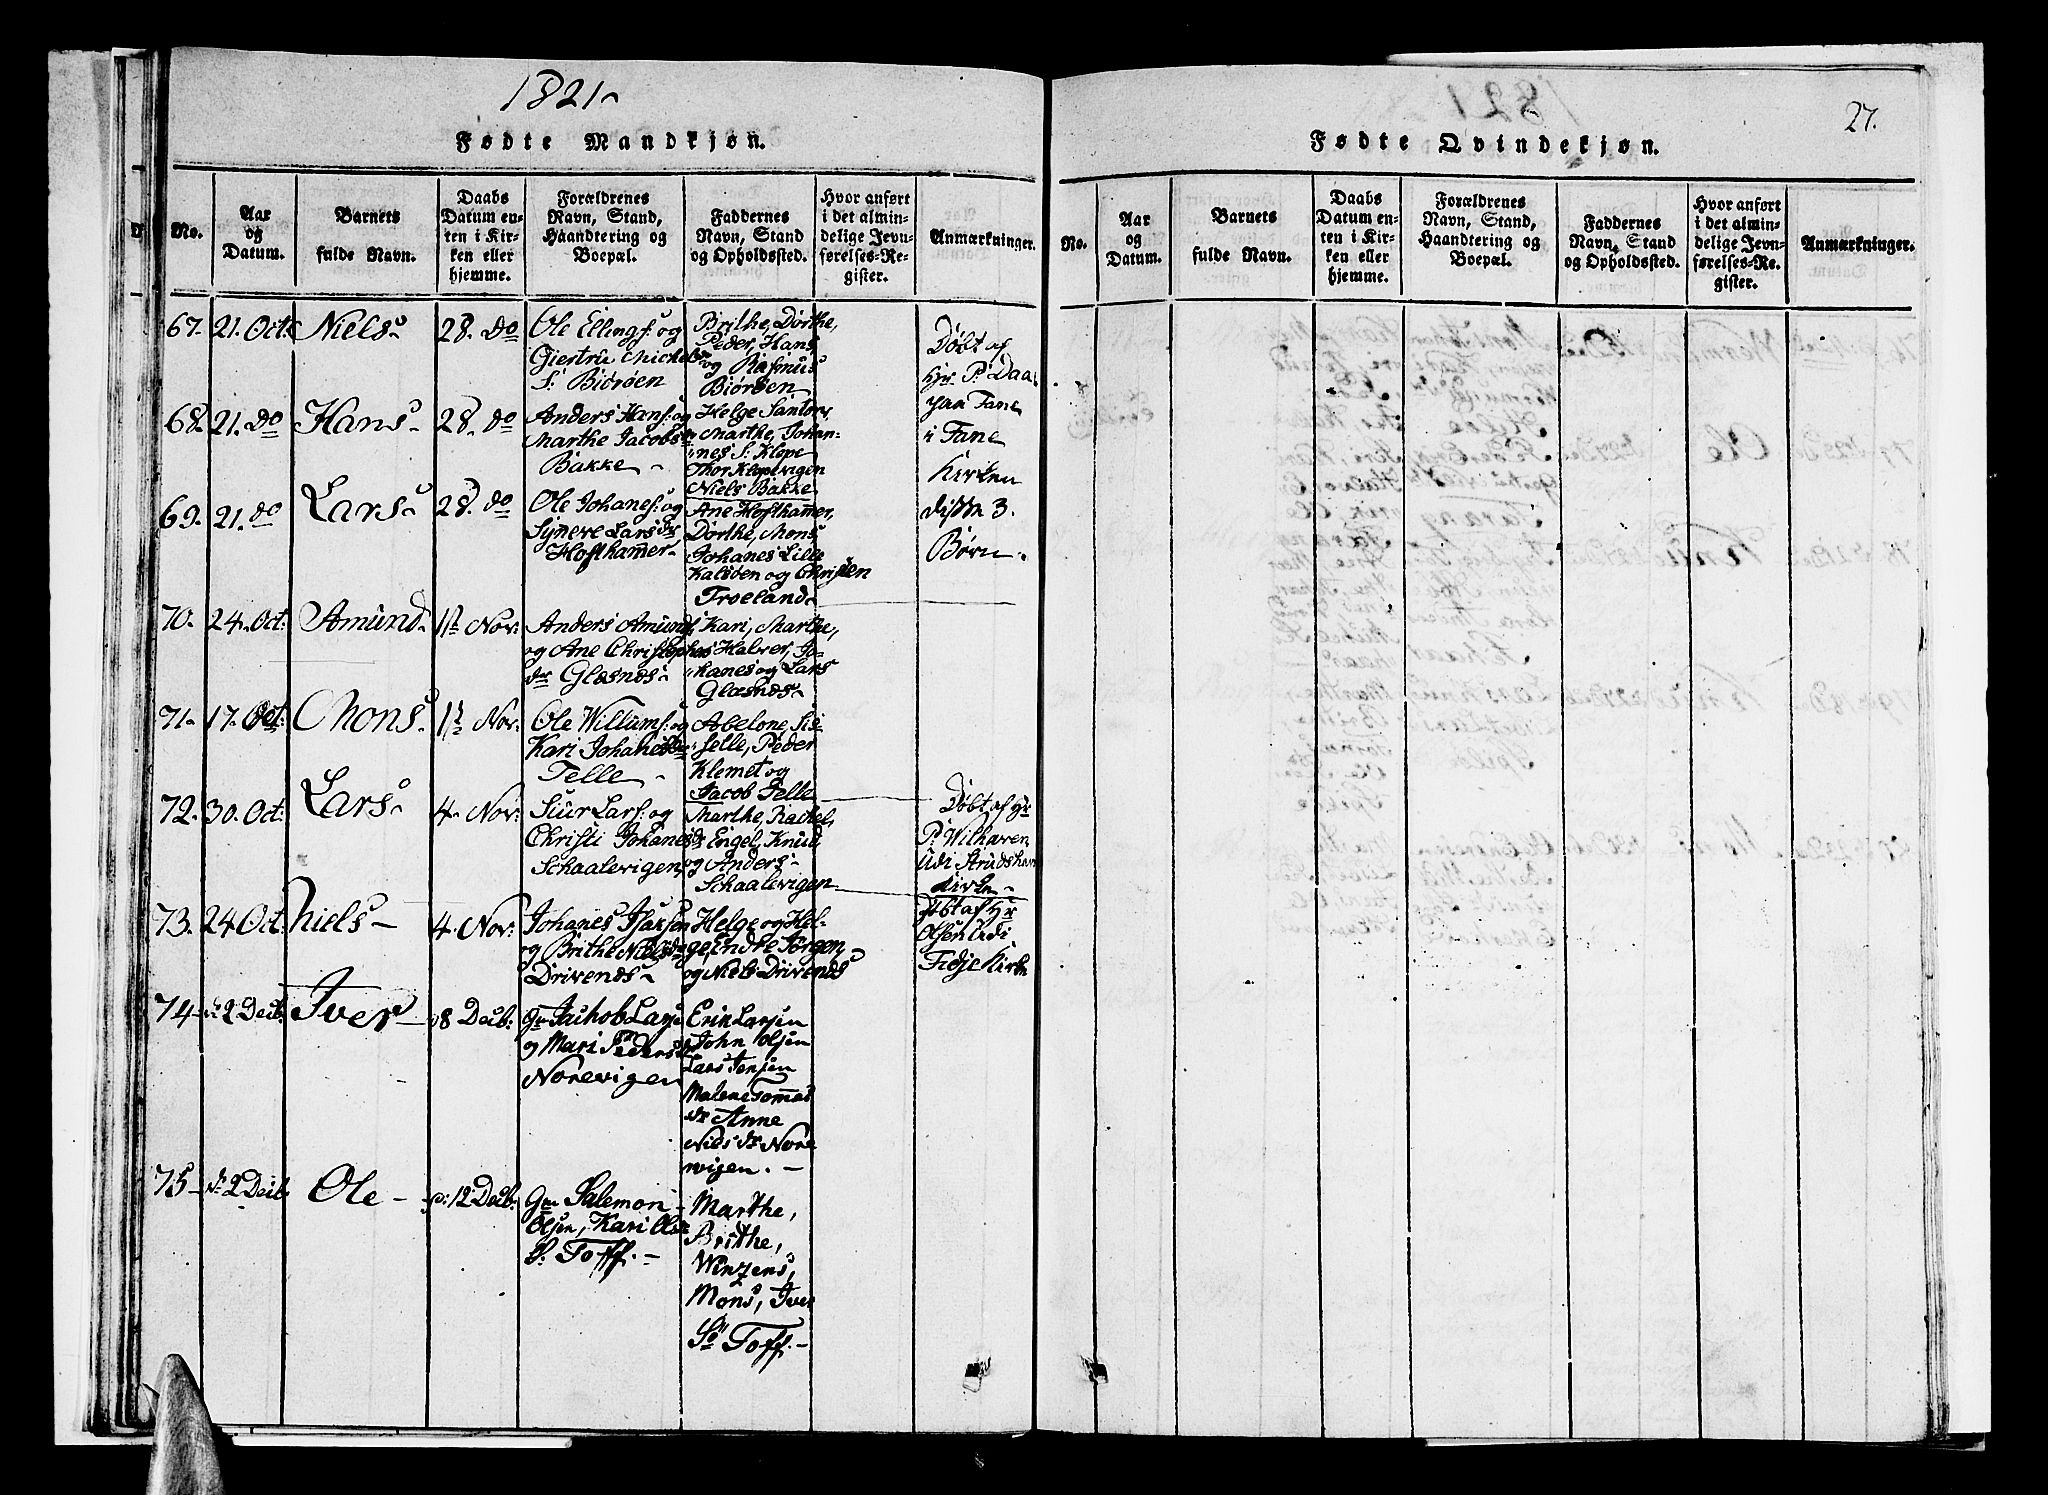 1821
Fødte Mandkjøn.
No.
Aar
og
Datum.
Barnets
fulde Navn.
Daabs
Datum en-
ten i Kir-
ken eller
hjemme.
Forældrenes
Navn, Stand,
Haandtering og
Boepæl.
Faddernes
Navn, Stand
og Opholdssted.
Hvor anført
i det almin-
delige Jevn-
førelses-Re-
gister.
Anmærkninger.
67. 21. Oct: Niels 28. do
Ole Ellings: og
Giertru Michels
S: Biöröen
Brithe, Dorthe,
Peder, Hans
og Rasmus
Biöröen
Döbt af
Hr P: Daa
paa Fane
i Fane
Kirken
disse 3.
Börn.
68. 21. do Hans 28. do
Anders Hans: og
Marthe Jacobs
Bakke
Helge Santor,
Marthe, Johan-
nes S: Klepe
Thor Klepevigen
Niels Bakke
69. 21. do Lars 28. do
Ole Johanes: og
Synneve Lars dr
Hofthamer
Ane Hofthamer,
Dorthe, Mons,
Johanes Lille
Kalsöen og Christen
Troeland
70. 24. Oct: Amund 11 Nov:
Anders Amund:
og Ane Christophes
dr Glæsnes
Kari, Marthe,
Halver, Jo-
hanes og Lars
Glæsnes
71. 17. Oct: Mons 11 Nov:
Ole Willums: og
Kari Johanes
Telle
Abelone, Sis-
selle, Peder
Klemet og
Jacob Telle
72. 30. Oct: Lars 4. Nov:
Siur Lars: og
Christi Johanes dr
Schaalevigen
Marthe, Rachel,
Engel, Knud
og Anders
Schaalevigen
Döbt af Hr
P: Wilhaven
udi Strudshavn
Kirke
73. 24 Oct: Niels 4. Nov:
Johanes Isaksen
og Brithe Niels
Drivenes
Helge og Hel-
ge, Endre Jörgen
og Niels Drivenes
Döbt af Hr
Olsen udi
Fidje Kirke
74 2 Decb: Iver 8 Decb:
Gm Jachob Larse
og Mari Peders
Norevigen
Erik Larsen
John Olsen
Lars Jensen
Malene Tommas
dr Anne
Niels dr Nore
wigen.
75 2 Decb: Ole 12 Decb:
Gm Salemon
Olsen, Kari Ols
S: Toff.
Marthe,
Brithe,
Winzens,
Mons, Iver
S: Toff.
27.
Fødte Qvindekjøn.
No.
Aar
og
Datum.
Barnets
fulde Navn.
Daabs
Datum en-
ten i Kir-
ken eller
hjemme.
Forældrenes
Navn, Stand,
Haandtering og
Boepæl.
Faddernes
Navn, Stand
og Opholdssted.
Hvor anført
i det almin-
delige Jevn-
førelses-Re-
gister.
Anmærkninger.